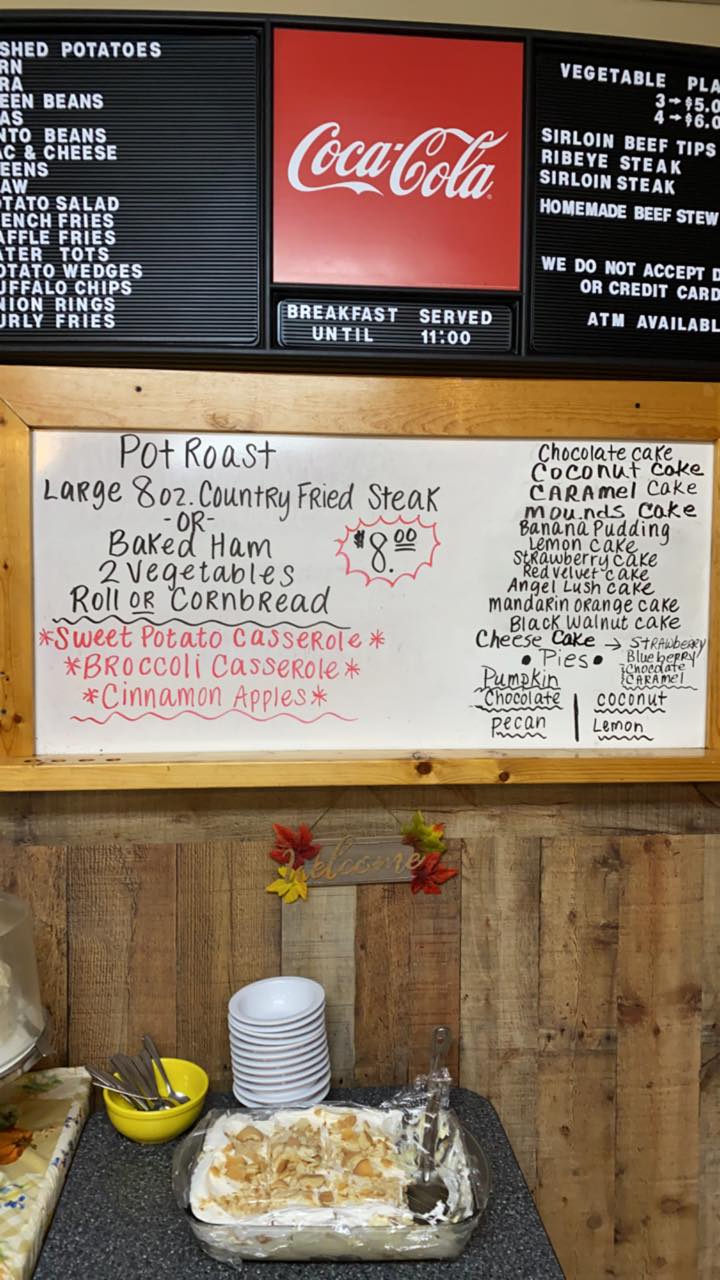 SHED POTATOES
RN
RA
EEN BEANS
AS
NTO BEANS
AC & CHEESE
EENS
AW
OTATO SALAD
ENCH FRIES
AFFLE FRIES
ATER TOTS
OTATO WEDGES
UFFALO CHIPS
NION RINGS
URLY FRIES
Coca-Cola
BREAKFAST SERVED
UNTIL 11:00
VEGETABLE PLA
3→$5.0
4→$6.0
SIRLOIN BEEF TIPS
RIBEYE STEAK
SIRLOIN STEAK
HOMEMADE BEEF STEW
WE DO NOT ACCEPT D
OR CREDIT CARD
ATM AVAILABL
Pot Roast
Large 8oz. Country Fried Steak
-OR-
Baked Ham
2 Vegetables
Roll OR Cornbread
$8.00
*Sweet Potato Casserole*
*Broccoli Casserole*
*Cinnamon Apples*
Chocolate cake
Coconut Cake
CARAmel Cake
mounds Cake
Banana Pudding
Lemon Cake
Strawberry Cake
Red Velvet Cake
Angel Lush Cake
Mandarin Orange Cake
Black Walnut Cake
Cheese Cake → Strawberry
Blueberry
Chocolate
CARAMEL
• Pies •
Pumpkin
Chocolate coconut
Pecan Lemon
Welcome